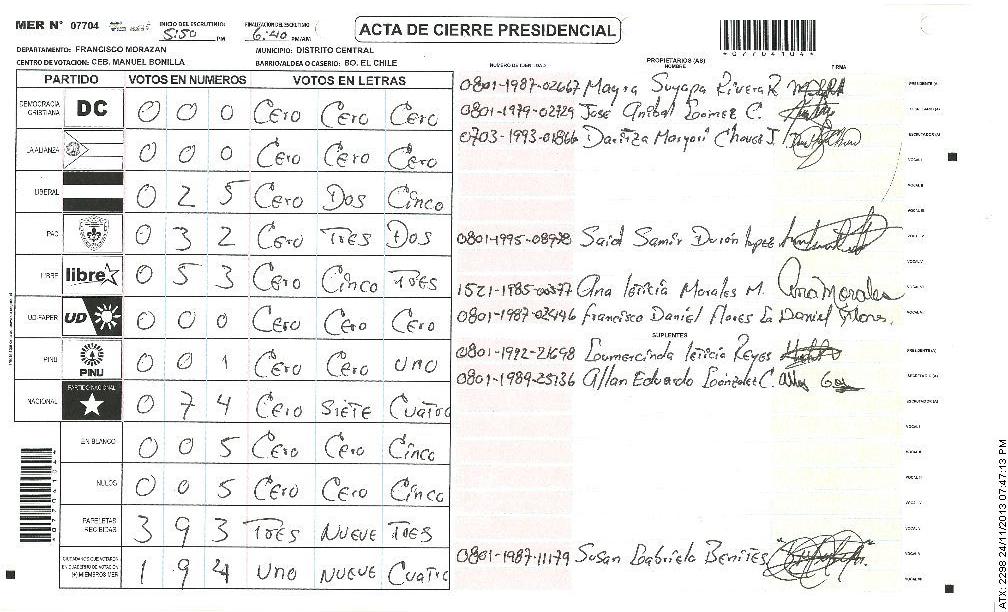 MER N° 07704
INICIO DEL ESCRUTINIO: 5:50 PM
FINALIZACION DEL ESCRUTINIO 6:40 PM/AM
ACTA DE CIERRE PRESIDENCIAL
DEPARTAMENTO: FRANCISCO MORAZAN MUNICIPIO: DISTRITO CENTRAL
CENTRO DE VOTACION: CEB. MANUEL BONILLA BARRIO/ALDEA O CASERIO: BO. EL CHILE
PARTIDO VOTOS EN NUMEROS VOTOS EN LETRAS
DEMOCRACIA CRISTIANA DC 0 0 0 Cero Cero Cero
LA ALIANZA 0 0 0 Cero Cero Cero
LIBERAL 0 2 5 Cero Dos Cinco
PAC 0 3 2 Cero Tres Dos
LIBRE libre 0 5 3 Cero Cinco Tres
UD-FAPER UD 0 0 0 Cero Cero Cero
PINU PINU 0 0 1 Cero Cero Uno
NACIONAL PARTIDO NACIONAL 0 7 4 Cero Siete Cuatro
EN BLANCO 0 0 5 Cero Cero Cinco
NULOS 0 0 5 Cero Cero Cinco
PAPELETAS RECIBIDAS 3 9 3 Tres Nueve Tres
CIUDADANOS QUE VOTARON EN CUADERNO DE VOTACION (+) MIEMBROS MER 1 9 4 Uno Nueve Cuatro
NUMERO DE IDENTIDAD PROPIETARIOS (AS) NOMBRE FIRMA
0801-1987-02667 Mayra Suyapa Rivera R. PRESIDENTE (A)
0801-1979-02729 Jose Anibal Gomez C. SECRETARIO (A)
0703-1993-01866 Daritza Maryori Chavez J. ESCRUTADOR (A)
VOCAL I
VOCAL II
VOCAL III
0801-1995-08978 Said Samir Durón Lopez
VOCAL V
1521-1985-00377 Ana leticia Morales M. Ana Morales
0801-1987-02446 Francisco Daniel Flores Daniel Flores.
SUPLENTES
0801-1992-21698 Gumercinda leticia Reyes PRESIDENTE (A)
0801-1989-25736 Allan Eduardo Gonzalez C. SECRETARIO (A)
ESCRUTADOR (A)
VOCAL I
0801-1987-11179 Susan Gabriela Benites
07704104
ATX: 2298 24/11/2013 07:47:13 PM